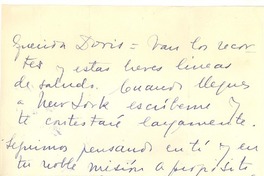 Querida Doris = Van los recor
tes y estas breves líneas
de saludo. Cuando llegues
a New York escríbeme y
te contestaré largamente.
Seguimos pensando en tí y en
tu noble misión a propósito